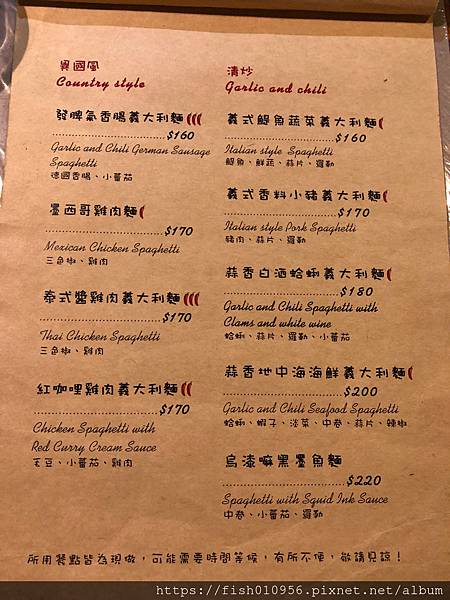 異國風
Country style
發脾氣香腸義大利麵
$160
Garlic and Chili German Sausage
Spaghetti
德國香腸、小蕃茄
墨西哥雞肉麵
$170
Mexican Chicken Spaghetti
三色椒、雞肉
泰式醬雞肉義大利麵
$170
Thai Chicken Spaghetti
三色椒、雞肉
紅咖哩雞肉義大利麵
$170
Chicken Spaghetti with
Red Curry Cream Sauce
毛豆、小蕃茄、雞肉
清炒
Garlic and chili
義式鯷魚蔬菜義大利麵
$160
Italian style Spaghetti
鯷魚、鮮蔬、蒜片、羅勒
義式香料小豬義大利麵
$170
Italian style Pork Spaghetti
豬肉、蒜片、羅勒
蒜香白酒蛤蜊義大利麵
$180
Garlic and Chili Spaghetti with
Clams and white wine
蛤蜊、蒜片、羅勒、小蕃茄
蒜香地中海海鮮義大利麵
$200
Garlic and Chili Seafood Spaghetti
蛤蜊、蝦子、淡菜、中卷、蒜片、辣椒
烏漆嘛黑墨魚麵
$220
Spaghetti with Squid Ink Sauce
中卷、小蕃茄、羅勒
所用餐點皆為現做，可能需要時間等候，有所不便，敬請見諒！
https://fish010956.pixnet.net/album